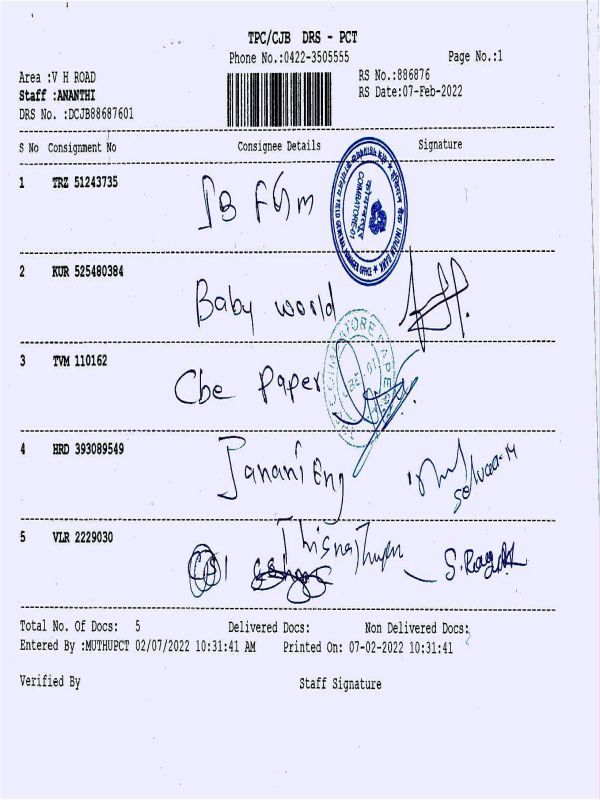 TPC/CJB DRS - PCT
Phone No.:0422-3505555 Page No.:1
Area :V H ROAD RS No.:886876
Staff :ANANTHI RS Date:07-Feb-2022
DRS No. :DCJB88687601
S No Consignment No Consignee Details Signature
1 TRZ 51243735
COIMBATORE-01
INDIAN BANK
2 KUR 525480384 Baby world
3 TVM 110162 Cbe Paper
4 HRD 393089549 Janani Eng
Selvaa-M
5 VLR 2229030
Total No. Of Docs: 5 Delivered Docs: Non Delivered Docs:
Entered By :MUTHUPCT 02/07/2022 10:31:41 AM Printed On: 07-02-2022 10:31:41
Verified By Staff Signature